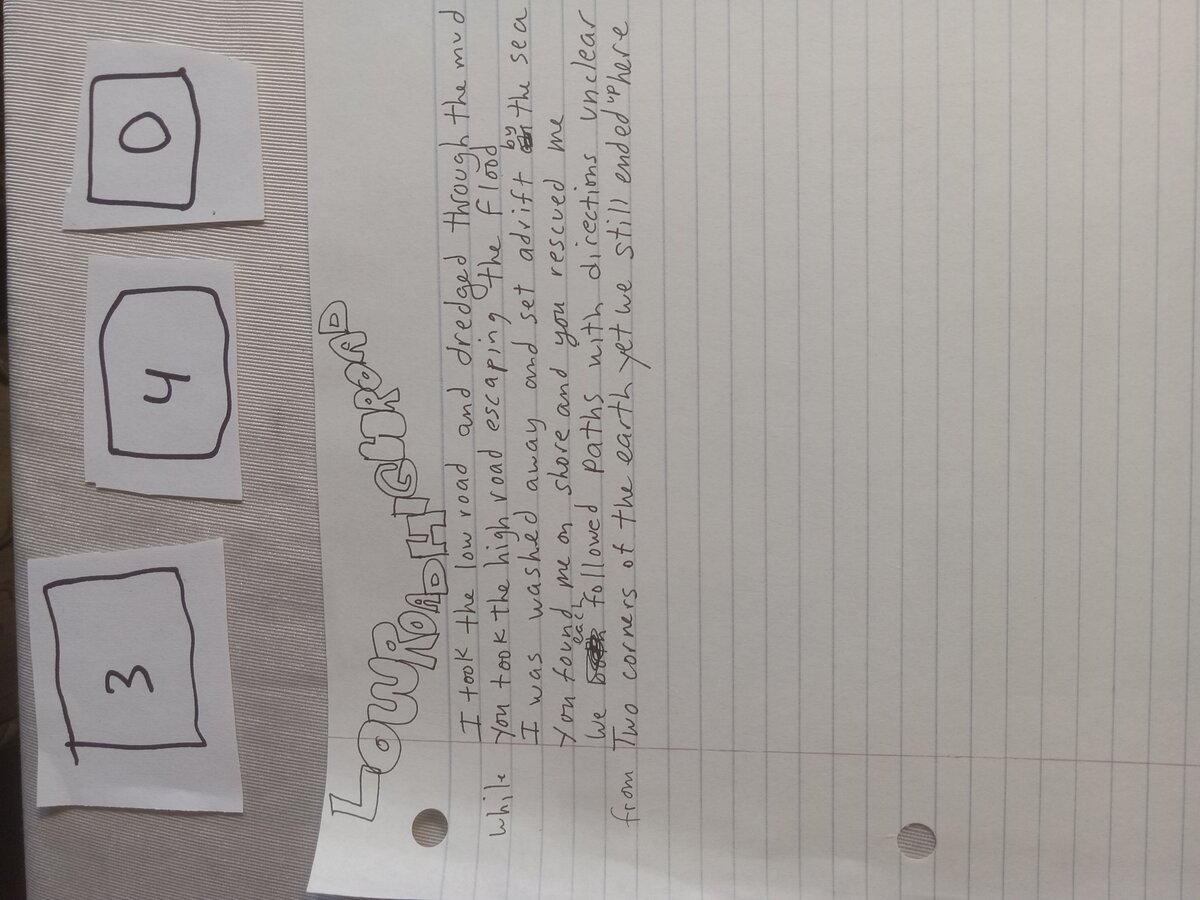 3 4 0
LOWROADHIGHROAD
I took the low road and dredged through the mud
while You took the high road escaping the flood
I was washed away and set adrift by the sea
You found me on shore and you rescued me
We each followed paths with directions unclear
from Two corners of the earth yet we still ended up here